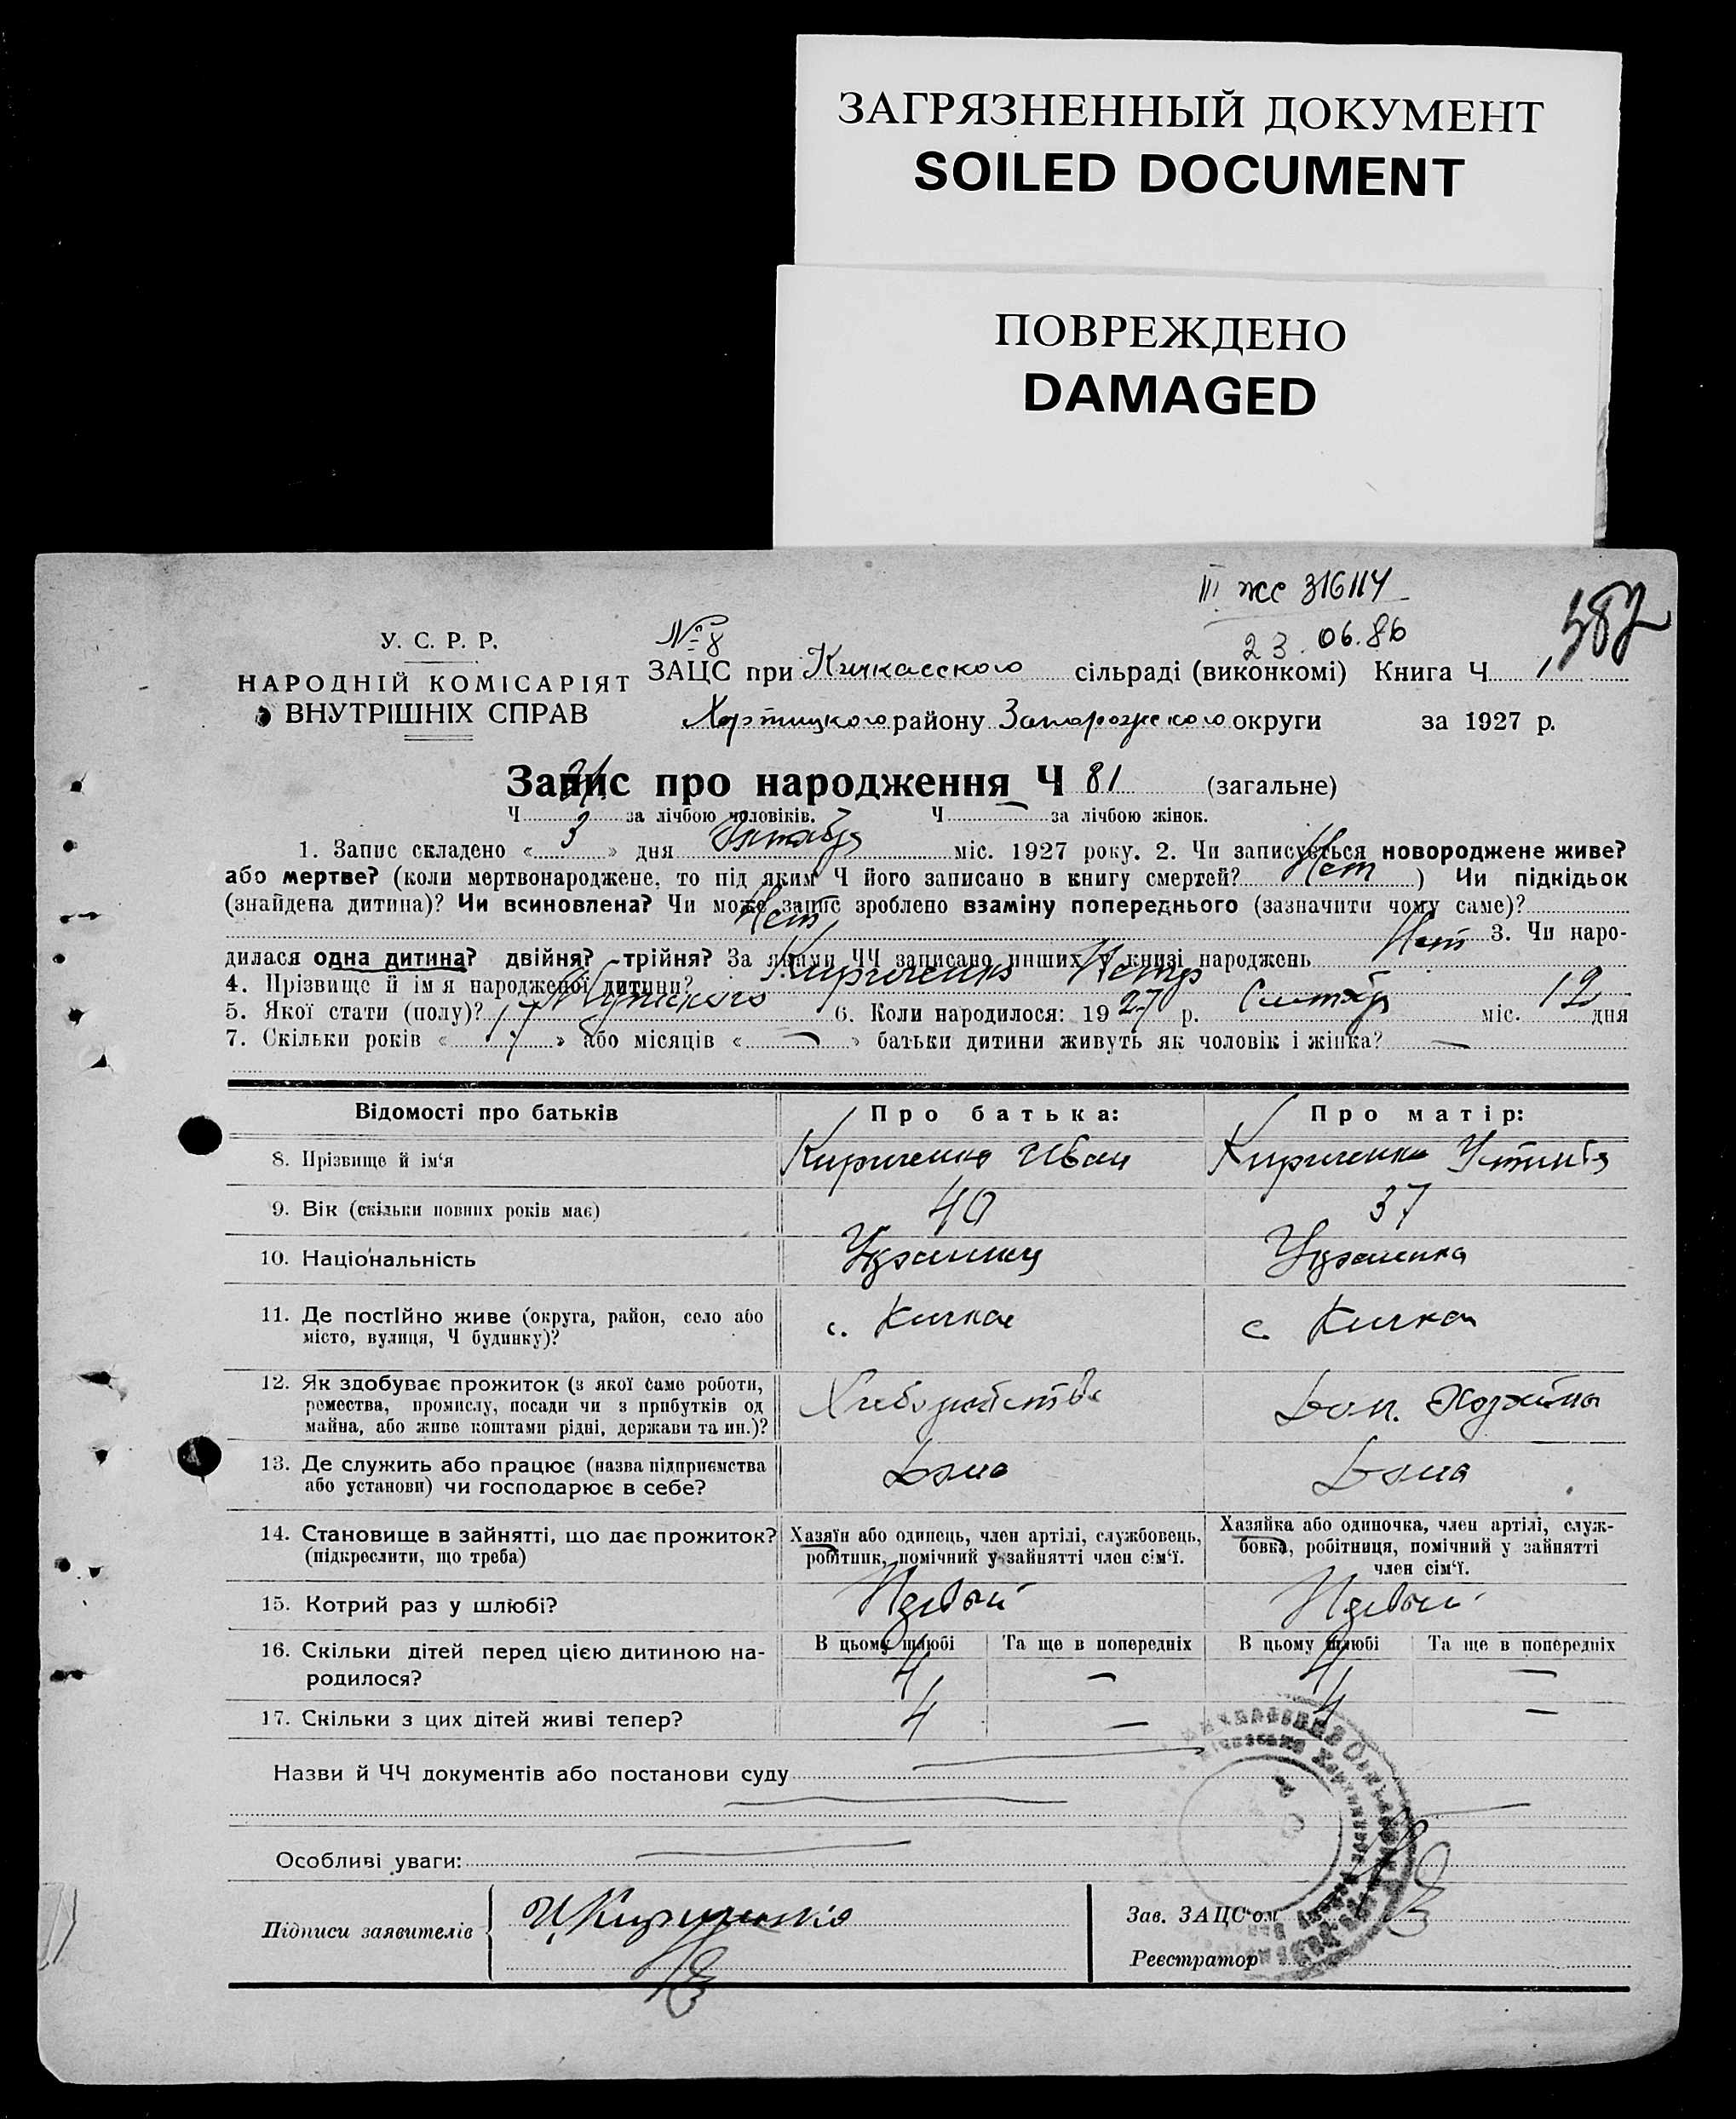 ЗАГРЯЗНЕННЫЙ ДОКУМЕНТ
SOILED DOCUMENT
ПОВРЕЖДЕНО
DAMAGED
III жс 316114
23.06.86
582
У. С. Р. Р.
НАРОДНІЙ КОМІСАРІЯТ
ВНУТРІШНІХ СПРАВ
№ 8
ЗАЦС при Кичкасского сільраді (виконкомі) Книга Ч 1
Хортицкого району Запорожского округи за 1927 р.
Запис про народження Ч 81 (загальне)
Ч за лічбою чоловіків. Ч — за лічбою жінок.
1. Запис складено « 3 » дня Октября міс. 1927 року. 2. Чи записується новороджене живе?
або мертве? (коли мертвонароджене, то під яким Ч його записано в книгу смертей? Нет ) Чи підкідьок
(знайдена дитина)? Чи всиновлена? Чи може запис зроблено взаміну попереднього (зазначити чому саме)?
Нет 3. Чи наро-
дилася одна дитина? двійня? трійня? За якими ЧЧ записано инших у книзі народжень Нет
4. Прізвище й імʼя народженої дитини? Кириченко Петр
5. Якої стати (полу)? Мужского 6. Коли народилося: 1927 р. Сентябр міс. 12 дня
7. Скільки років « 17 » або місяців « — » батьки дитини живуть як чоловік і жінка? —
Відомості про батьків Про батька: Про матір:
8. Прізвище й ім‘я Кириченко Иван Кириченко Устинья
9. Вік (скільки повних років має) 40 37
10. Національність Украинец Украинка
11. Де постійно живе (округа, район, село або
місто, вулиця, Ч будинку)? с. Кичкас с. Кичкас
12. Як здобуває прожиток (з якої саме роботи,
ремества, промислу, посади чи з прибутків од
майна, або живе коштами рідні, держави та ин.)? Хлебопашество Дом. Хозяйка
13. Де служить або працює (назва підприємства
або установи) чи господарює в себе? Дома Дома
14. Становище в зайнятті, що дає прожиток?
(підкреслити, що треба)
Хазяїн або одинець, член артілі, службовець,
робітник, помічний у зайнятті член сім‘ї.
Хазяйка або одиночка, член артілі, служ-
бовка, робітниця, помічний у зайнятті
член сім‘ї.
15. Котрий раз у шлюбі? Первый Первый
В цьому шлюбі Та ще в попередніх В цьому шлюбі Та ще в попередніх
16. Скільки дітей перед цією дитиною на-
родилося? 4 — 4 —
17. Скільки з цих дітей живі тепер? 4 — 4 —
Назви й ЧЧ документів або постанови суду
Особливі уваги:
Підписи заявителів И Кириченко
Зав. ЗАЦС‘ом
Реєстратор